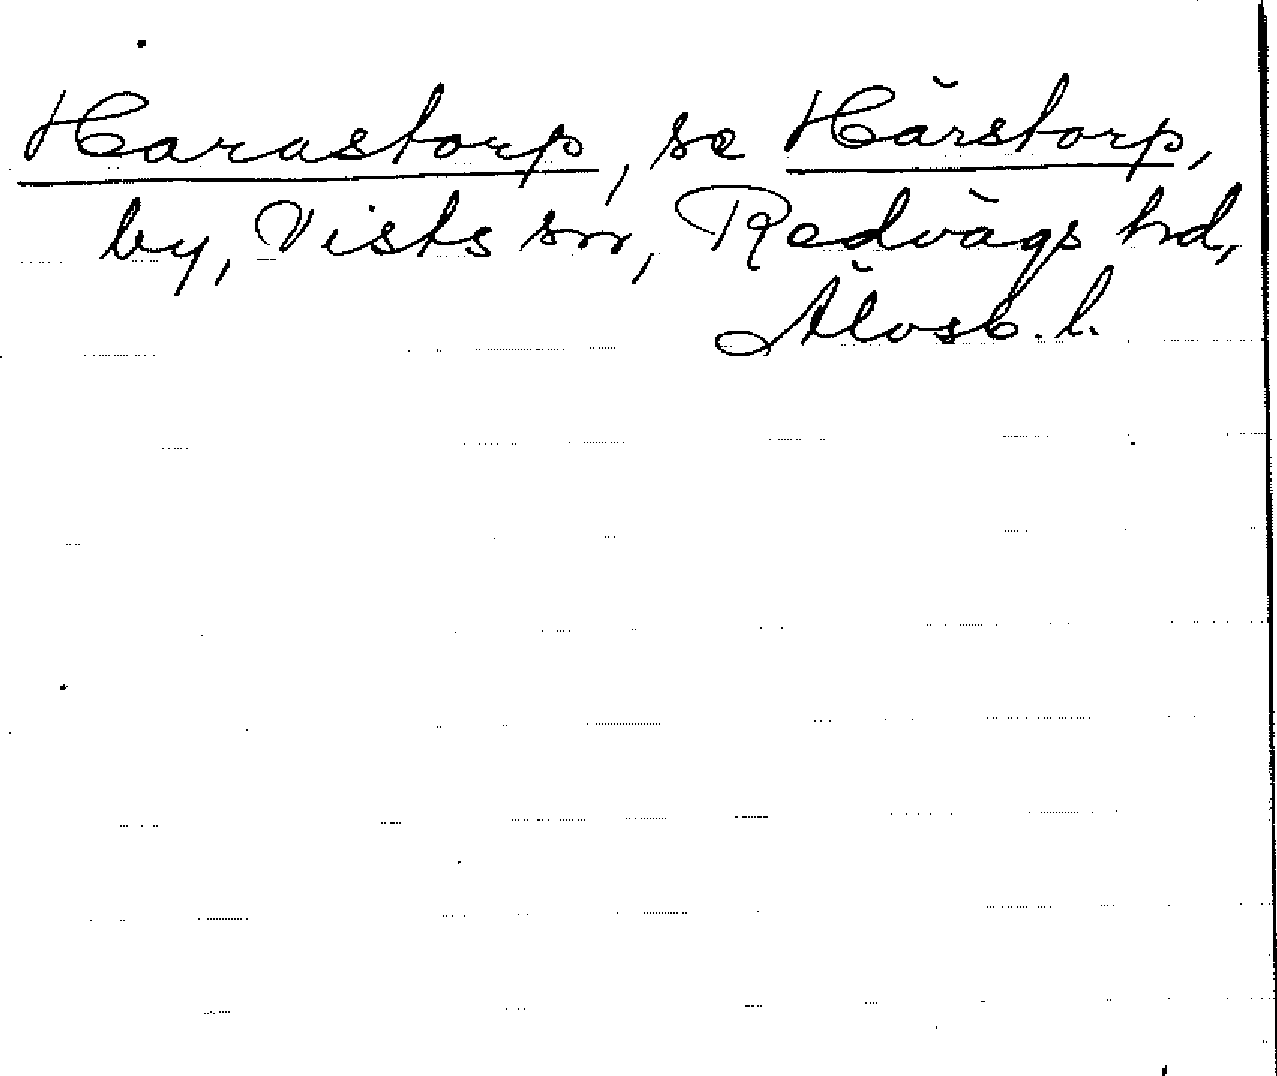 Harastorp, se Hårstorp,
by, Vists sn, Redvägs hd,
Älvsb. l.